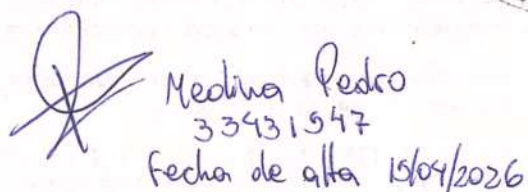 Medina Pedro
33431947
fecha de alta 15/04/2026